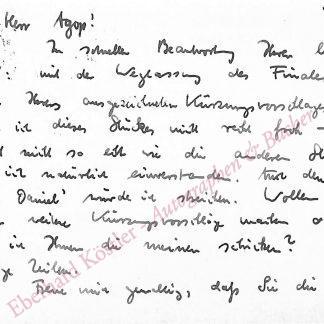 Herr Agop!
In schneller Beantwortung Ihres
mit der Weglassung des Finale
Ihres ausgezeichneten Kürzungsvorschlages
ich dieses Stückes nicht recht froh
nicht so oft wie die anderen
ich natürlich einverstanden. Auf den
Daniel' würde ich streichen. Wollen
weitere Kürzungsvorschläge machen
ich Ihnen die meinen schicken?
Zeilen.
mir gewaltig, daß Sie die
Eberhard Köstler Autographen & Bücher